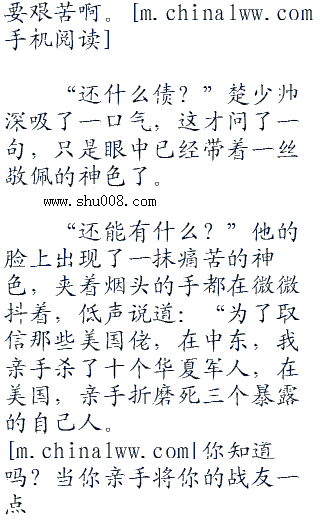 要艰苦啊。[m.chinalww.com
手机阅读]
“还什么债？”楚少帅
深吸了一口气，这才问了一
句，只是眼中已经带着一丝
敬佩的神色了。
www.shu008.com
“还能有什么？”他的
脸上出现了一抹痛苦的神
色，夹着烟头的手都在微微
抖着，低声说道：“为了取
信那些美国佬，在中东，我
亲手杀了十个华夏军人，在
美国，亲手折磨死三个暴露
的自己人。
[m.chinalww.com|你知道
吗？当你亲手将你的战友一
点